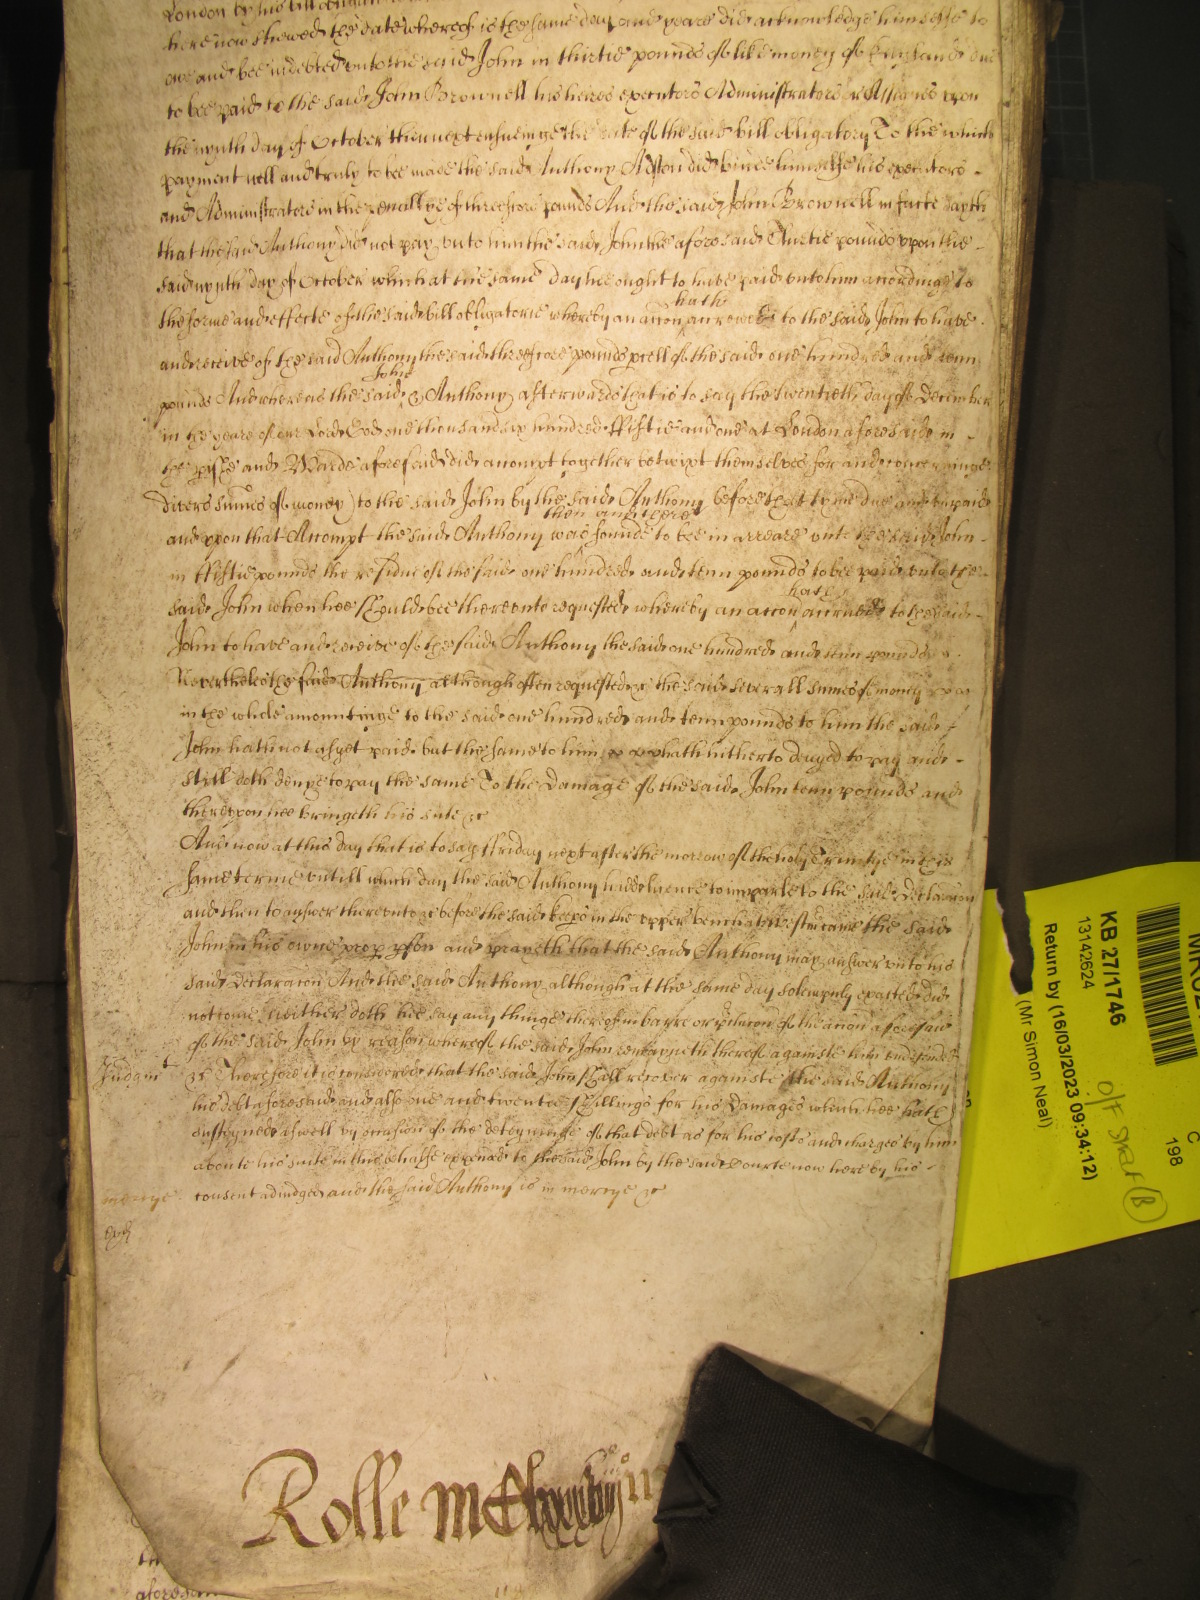 London by his bill obligatory
here now shewed the date whereof is the same day and yeare did acknowledge himselfe to
owe and bee indebted unto the said John in thirtie pounds of like money of England due
to bee paid to the said John Brownell his heires executors Administrators or Assignes upon
the nynth day of October then next ensueinge the date of the said bill obligatory To the which
payment well and truly to bee made the said Anthony did binde himselfe his executors
and Administrators in the penaltye of threescore pounds And the said John Brownell in facte sayth
that the said Anthony did not pay unto him the said John the aforesaid thirtie pounds upon the
said nynth day of October which at the same day hee ought to have paid unto him accordinge to
the forme and effecte of the said bill obligatorie whereby an accon hath accrewed to the said John to have
and receive of the said Anthony the said threescore pounds pcell of the said one hundred and tenn
pounds And whereas the said John & Anthony afterwards that is to say the twentieth day of December
in the yeare of our Lord God one thousand six hundred fiftie and one at London aforesaid in
the pishe and Warde aforesaid did accompt together betwixt themselves for and concerninge
divers sumes of money to the said John by the said Anthony before that tyme due and unpaid
and upon that Accompt the said Anthony was then and there found to bee in arreare unto the said John
in fiftie pounds the residue of the said one hundred and tenn pounds to bee paid unto the
said John when hee should bee thereunto requested whereby an accon hath accrued to the said
John to have and receive of the said Anthony the said one hundred and tenn pounds
Neverthelesse the said Anthony although often requested &c the said severall sumes of money
in the whole amountinge to the said one hundred and tenn pounds to him the said
John hath not as yet paid but the same to him to pay hath hitherto denyed to pay and
still doth denye to pay the same To the Damage of the said John tenn pounds and
thereupon hee bringeth his suite &c
And now at this day that is to say Friday next after the morrow of the holy Trinitye in this
same terme untill which day the said Anthony had licence to imparle to the said Declaracon
and then to answer thereunto &c before the said keeps in the upper bench at Westm came the said
John in his owne prop pson and prayeth that the said Anthony may answer unto his
said Declaracon And the said Anthony although at the same day solempnly exacted did
not come neither doth hee say any thinge thereof in barre or of the accon aforesaid
of the said John by reason whereof the said John remayneth thereof againste him undefended
Judgmt &c Therefore it is considered that the said John shall recover againste the said Anthony
his debt aforesaid and also one and twentie shillings for his Damages which hee hath
susteyned aswell by occasion of the deteyninge of that debt as for his costs and charges by him
aboute his suite in this behalfe expended to the said John by the said Courte now here by his
mercye consent adiudged and the said Anthony is in mercye &c
Rolle
aforesaid
KB 27/1746
13142624
Return by (16/03/2023 09:34:12)
(Mr Simon Neal)
C
198
O/F
B